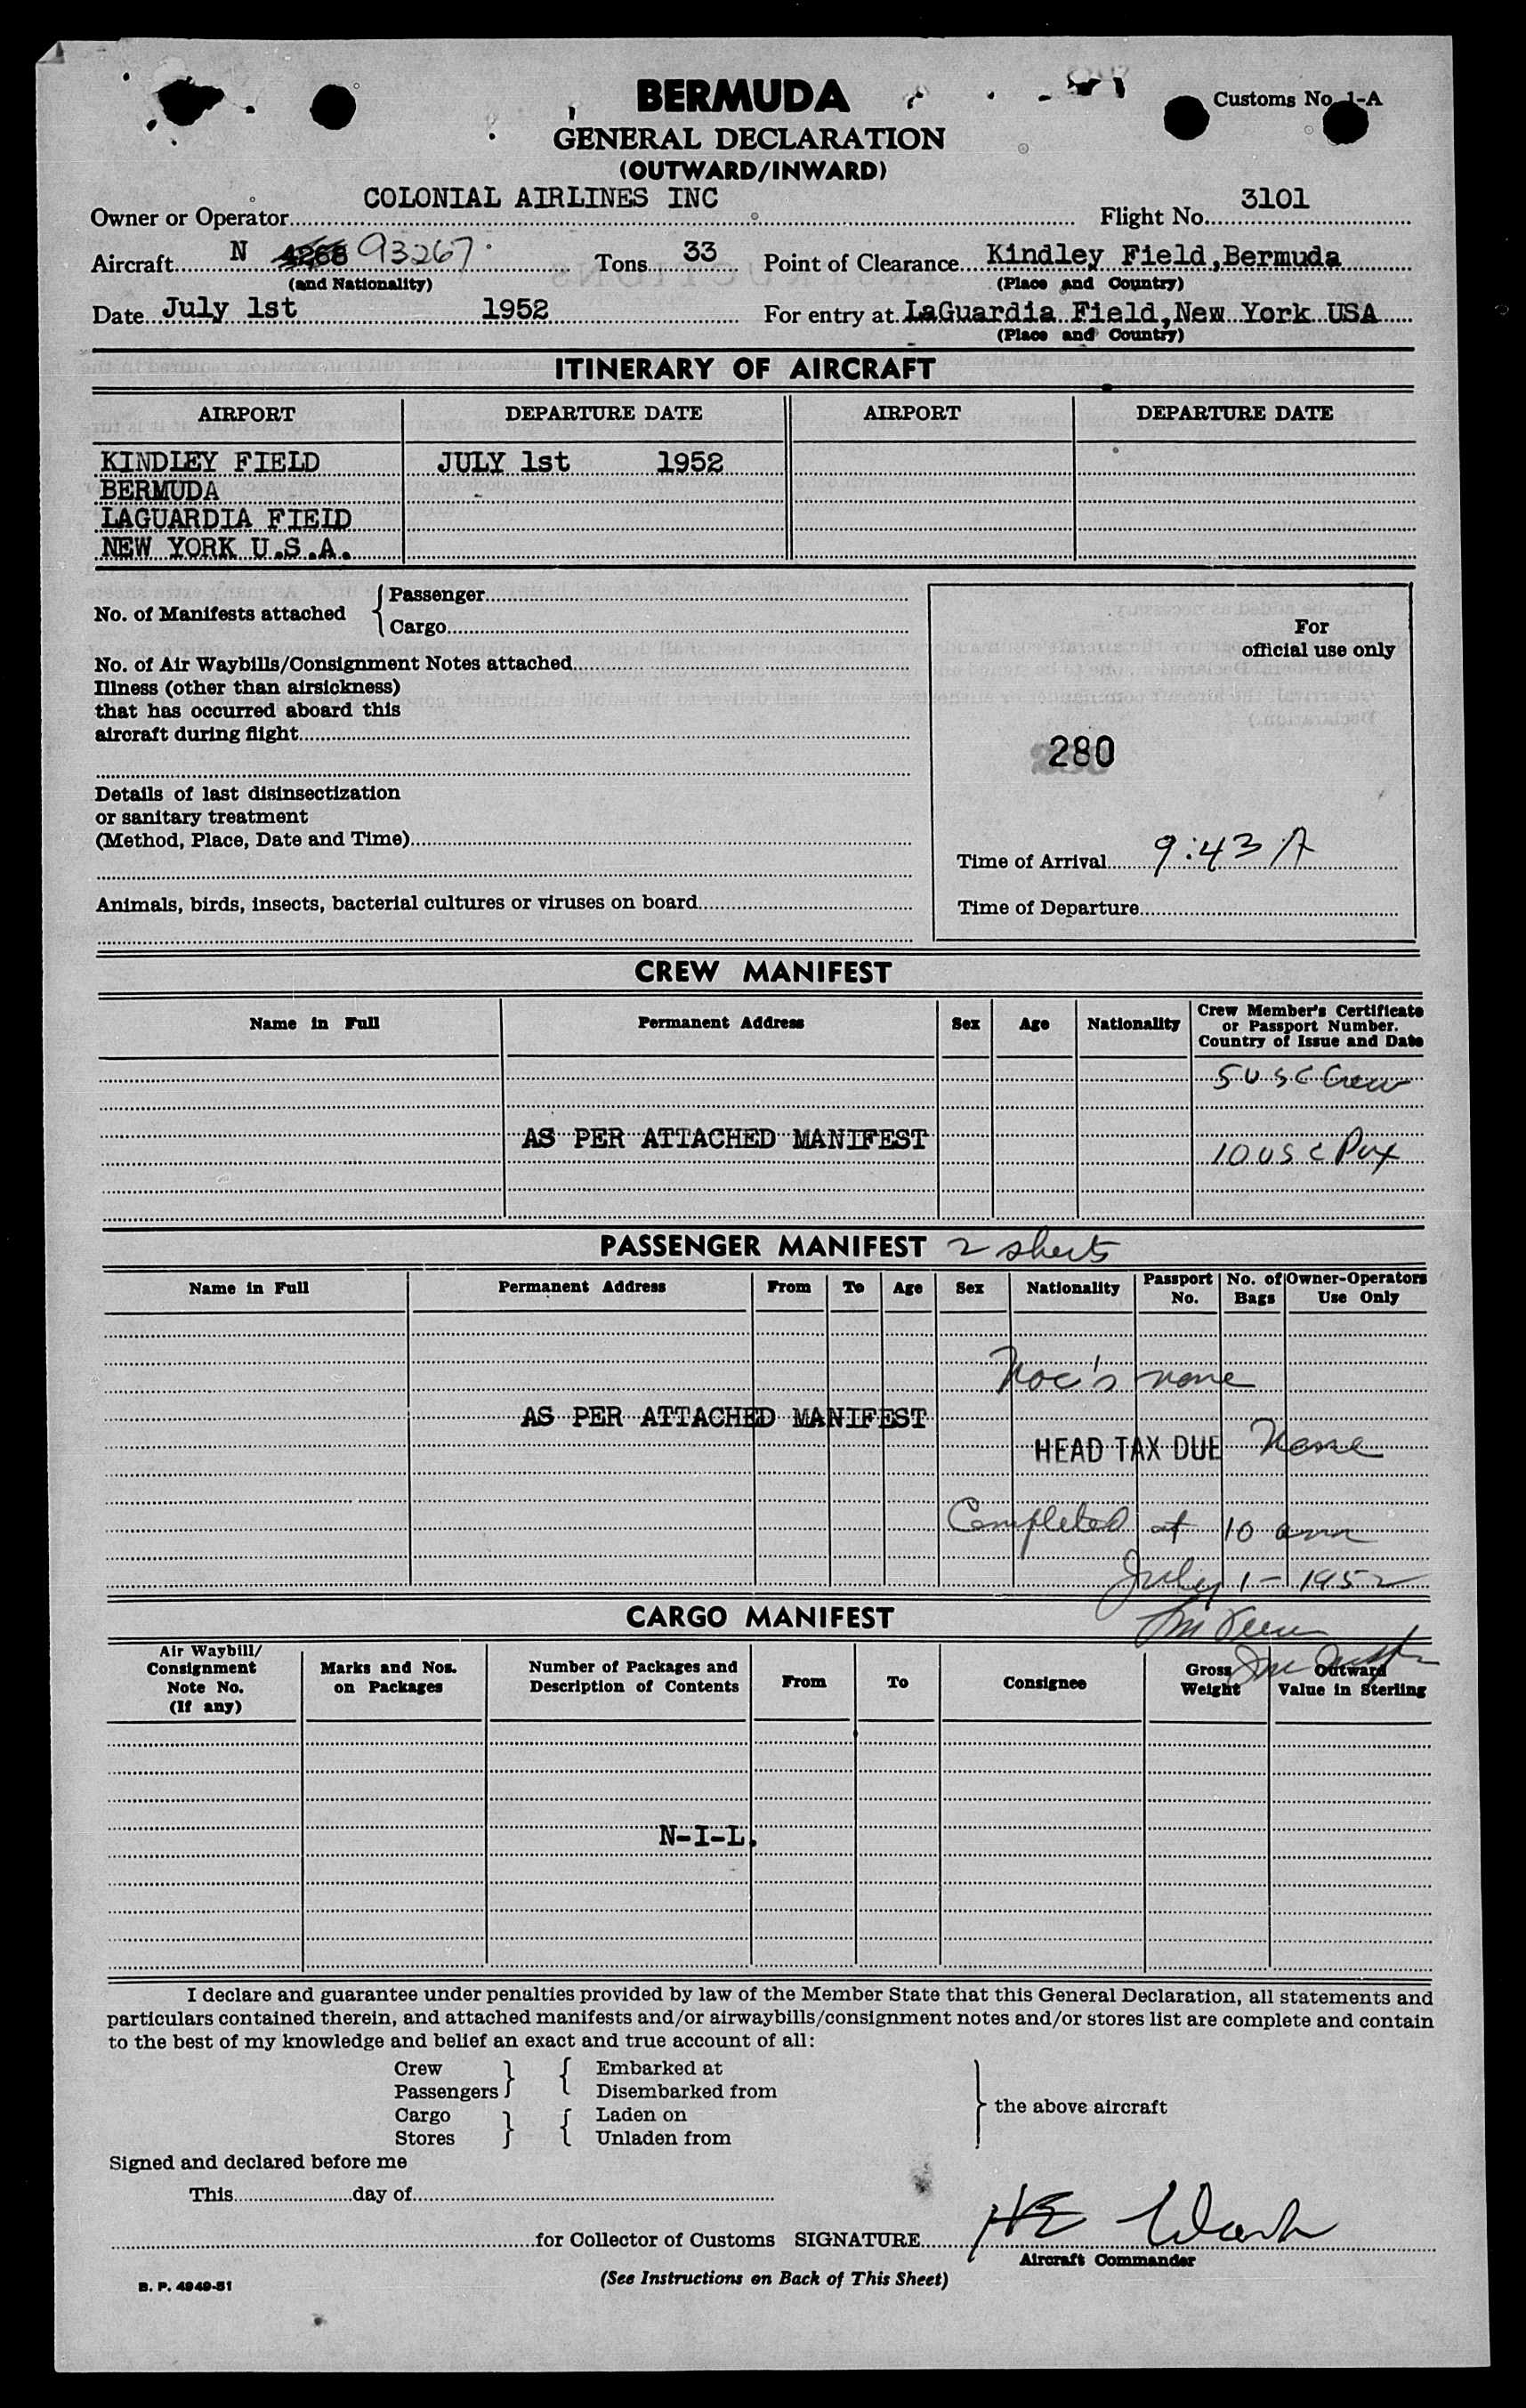 BERMUDA
Customs No. 1-A
GENERAL DECLARATION
(OUTWARD/INWARD)
Owner or Operator COLONIAL AIRLINES INC Flight No. 3101
Aircraft N 4268 93267 Tons 33 Point of Clearance Kindley Field,Bermuda
(and Nationality) (Place and Country)
Date July 1st 1952 For entry at LaGuardia Field,New York USA
(Place and Country)
ITINERARY OF AIRCRAFT
AIRPORT DEPARTURE DATE AIRPORT DEPARTURE DATE
KINDLEY FIELD JULY 1st 1952
BERMUDA
LAGUARDIA FIELD
NEW YORK U.S.A.
No. of Manifests attached { Passenger
Cargo
For
official use only
No. of Air Waybills/Consignment Notes attached
Illness (other than airsickness)
that has occurred aboard this
aircraft during flight
280
Details of last disinsectization
or sanitary treatment
(Method, Place, Date and Time)
Time of Arrival 9:43 A
Animals, birds, insects, bacterial cultures or viruses on board
Time of Departure
CREW MANIFEST
Name in Full Permanent Address Sex Age Nationality Crew Member's Certificate
or Passport Number.
Country of Issue and Date
5 USC Crew
AS PER ATTACHED MANIFEST
10 USC Pax
PASSENGER MANIFEST 2 sheets
Name in Full Permanent Address From To Age Sex Nationality Passport No. No. of Bags Owner-Operators Use Only
none
AS PER ATTACHED MANIFEST
HEAD TAX DUE None
Completed at 10 am
July 1 - 1952
CARGO MANIFEST
Air Waybill/
Consignment
Note No.
(If any)
Marks and Nos.
on Packages
Number of Packages and
Description of Contents
From To Consignee
Gross
Weight
Outward
Value in Sterling
N-I-L.
I declare and guarantee under penalties provided by law of the Member State that this General Declaration, all statements and
particulars contained therein, and attached manifests and/or airwaybills/consignment notes and/or stores list are complete and contain
to the best of my knowledge and belief an exact and true account of all:
Crew } { Embarked at
Passengers Disembarked from
Cargo } { Laden on
Stores Unladen from
} the above aircraft
Signed and declared before me
This day of
for Collector of Customs SIGNATURE
Aircraft Commander
B. P. 4949-51
(See Instructions on Back of This Sheet)